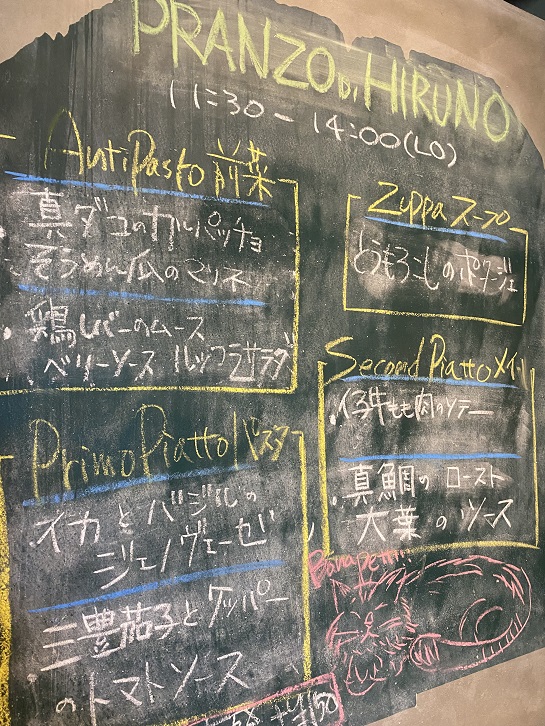 PRANZO DI HIRUNO
11:30 - 14:00(LO)
AntiPasto 前菜
真ダコのカルパッチョ
そうめん瓜のマリネ
・鶏レバーのムース
ベリーソース ルッコラサラダ
Zuppa スープ
とうもろこしのポタージュ
Second Piatto メイン
・仔牛もも肉のソテー
・真鯛のロースト
大葉のソース
Primo Piatto パスタ
・イカとバジルの
ジェノヴェーゼ
・三豊茄子とケッパー
のトマトソース
Buonappetit!!